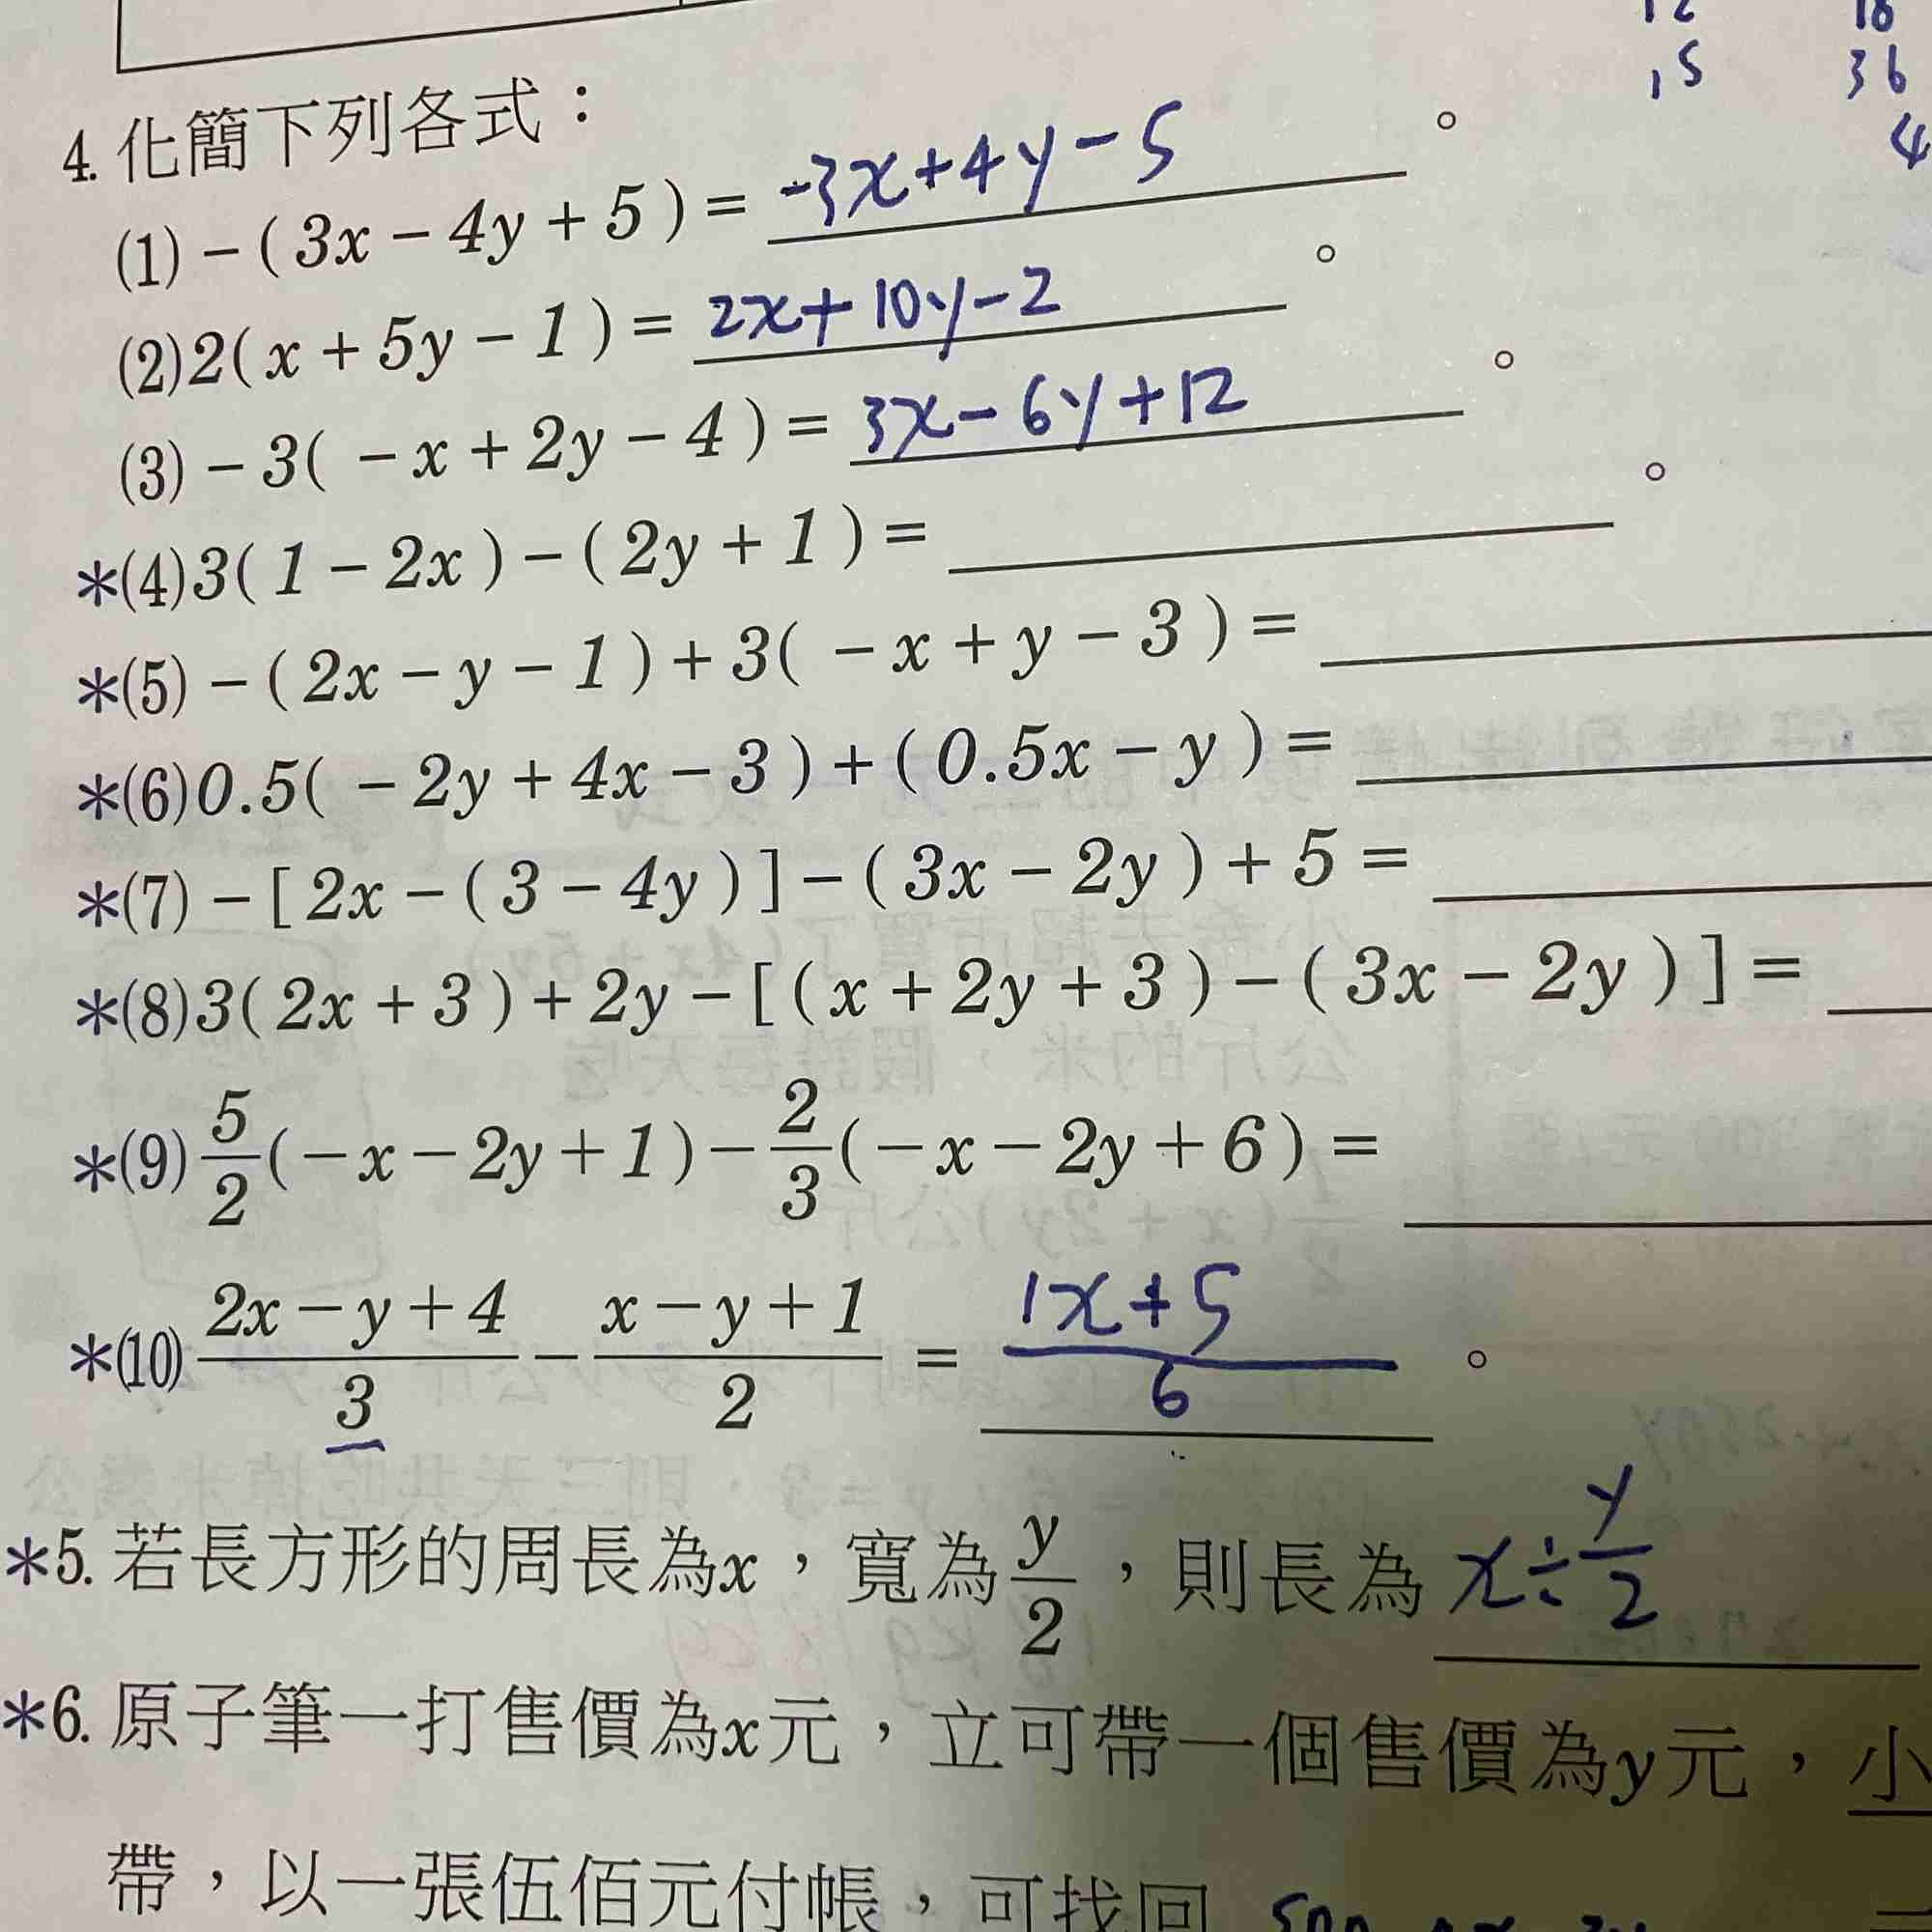 12 18
15 36
4
4. 化簡下列各式：
(1) -(3x-4y+5)= -3x+4y-5 。
(2) 2(x+5y-1)= 2x+10y-2 。
(3) -3(-x+2y-4)= 3x-6y+12 。
*(4) 3(1-2x)-(2y+1)= 。
*(5) -(2x-y-1)+3(-x+y-3)=
*(6) 0.5(-2y+4x-3)+(0.5x-y)=
*(7) -[2x-(3-4y)]-(3x-2y)+5=
*(8) 3(2x+3)+2y-[(x+2y+3)-(3x-2y)]=
*(9) 5/2(-x-2y+1)-2/3(-x-2y+6)=
*(10) (2x-y+4)/3-(x-y+1)/2= (1x+5)/6 。
*5. 若長方形的周長為x，寬為y/2，則長為 x÷y/2
*6. 原子筆一打售價為x元，立可帶一個售價為y元，小
帶，以一張伍佰元付帳，可找回